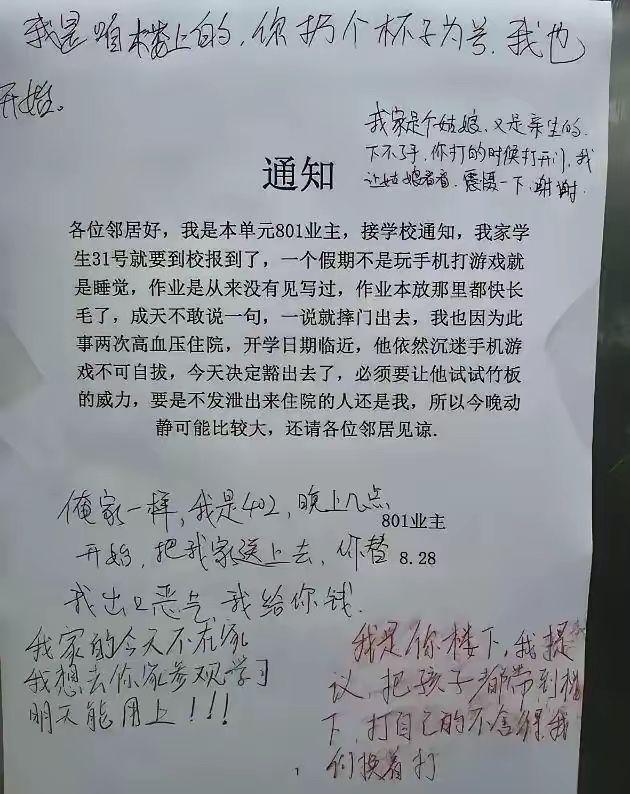 我是咱楼上的,你扔个杯子为号,我也
开始。
我家是个姑娘、又是亲生的.
下不了手,你打的时候打开门,我
让姑娘看看.震慑一下,谢谢.
通知
各位邻居好，我是本单元801业主，接学校通知，我家学
生31号就要到校报到了，一个假期不是玩手机打游戏就
是睡觉，作业是从来没有见写过，作业本放那里都快长
毛了，成天不敢说一句，一说就摔门出去，我也因为此
事两次高血压住院，开学日期临近，他依然沉迷手机游
戏不可自拔，今天决定豁出去了，必须要让他试试竹板
的威力，要是不发泄出来住院的人还是我，所以今晚动
静可能比较大，还请各位邻居见谅.
801业主
8.28
俺家一样,我是402,晚上几点
开始,把我家送上去,你替
我出口恶气,我给你钱.
我家的今天不在家
我想去你家参观学习
明天能用上!!!
我是你楼下,我提
议,把孩子都带到楼
下,打自己的不舍得我
们换着打
1